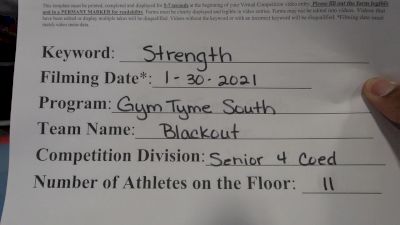 This template must be printed, completed and displayed for 5-7 seconds at the beginning of your Virtual Competition video entry. Please fill out the form legibly
and in a PERMANT MARKER for readability. Forms must be clearly displayed and legible in video entries. Forms may not be edited into videos. Videos that
have been edited to display multiple takes will be disqualified. Videos without the keyword or with an incorrect keyword will be disqualified. *Filming date must
match video meta data.
Keyword: Strength
Filming Date*: 1-30-2021
Program: Gym Tyme South
Team Name: Blackout
Competition Division: Senior 4 Coed
Number of Athletes on the Floor: 11